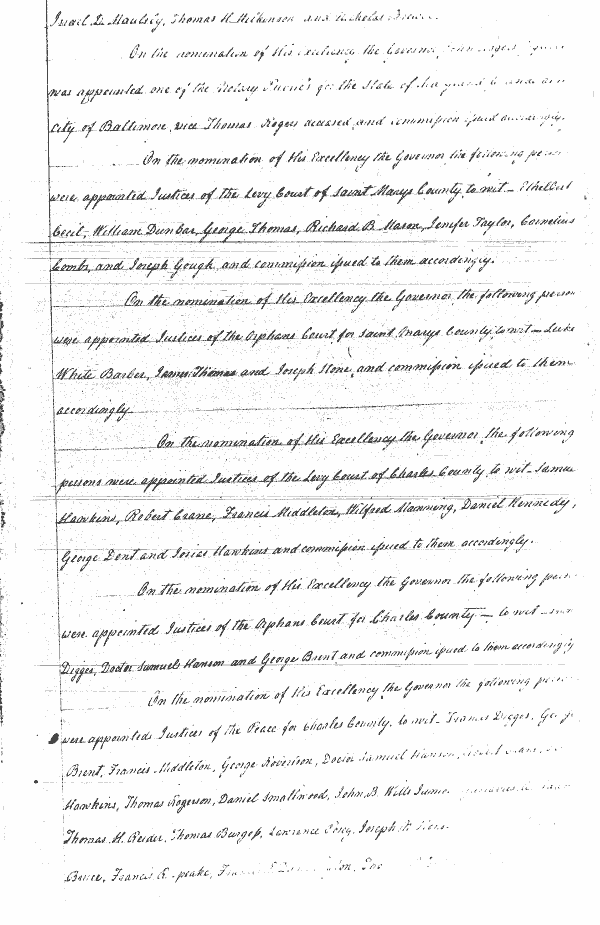 Israel D. Maulsby, Thomas H. Wilkinson and Nicholas Brewer
On the nomination of His excellency the Governor John
was appointed one of the Notary Publics for the State of
City of Baltimore, vice Thomas Rogers deceased and commission issued accordingly.
On the nomination of His Excellency the Governor the following
were appointed Justices of the Levy Court of Saint Marys County to wit – Ethelbert
Cecil, William Dunbar, George Thomas, Richard B. Mason, Jenifer Taylor, Cornelius
Combs, and Joseph Gough and commission issued to them accordingly.
On the nomination of His Excellency the Governor the following person
were appointed Justices of the Orphans Court for Saint Marys County, to wit – Luke
White Barber, James Thomas and Joseph Stone, and commission issued to them
accordingly.
On the nomination of His Excellency the Governor the following
persons were appointed Justices of the Levy Court of Charles County to wit – Samue
Hawkins, Robert Crane, Francis Middleton, Wilfred Manning, Daniel Kennedy,
George Dent and Josias Hawkins and commission issued to them accordingly.
On the nomination of His Excellency the Governor the following
were appointed Justices of the Orphans Court for Charles County – to wit –
Digges, Doctor Samuel Hanson and George Brent and commission issued to them accordingly
On the nomination of His Excellency the Governor the following
were appointed Justices of the Peace for Charles County, to wit – Francis Digges,
Brent, Francis Middleton, George Robertson, Doctor Samuel Hanson,
Hawkins, Thomas Rogerson, Daniel Smallwood, John B. Wills Junior
Thomas H. Reeder, Thomas Burgess, Lawrence Posey, Joseph
Bruce, Francis R. Speake,